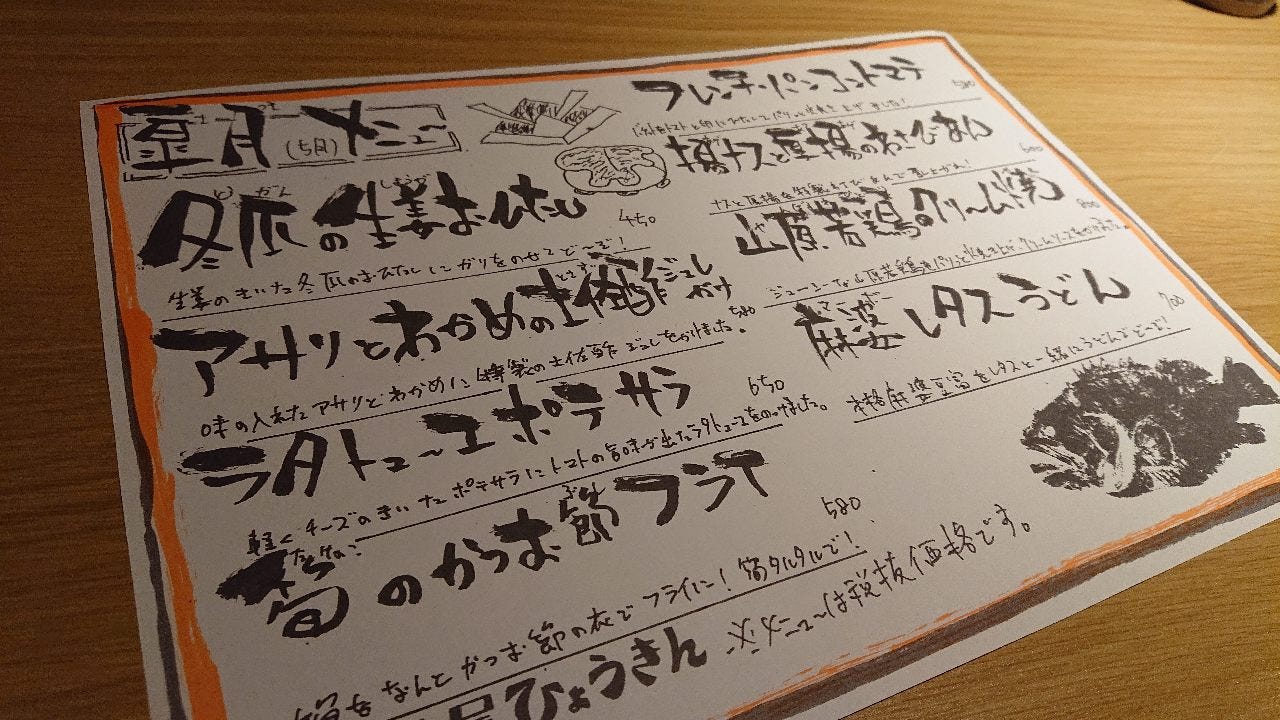 皐月メニュー
さつき
(5月)
冬瓜の生姜おひたし
とうがん
しょうが
450
生姜のきいた冬瓜のおひたしにガリをのせてど〜ぞ！
アサリとわかめの土佐酢ジュレかけ
とさず
580
味の入れたアサリとわかめに特製の土佐酢ジュレをかけました。
ラタトューユポテサラ
650
軽くチーズのきいたポテサラにトマトの旨味が出たラタトューユをのっけました。
筍のかつお節フライ
たけのこ
ぶし
580
筍をなんとかつお節の衣でフライに！筍タルタルで！
フレンチ・パンコントマテ
580
揚ナスと厚揚のわさびあん
600
山原若鶏のクリーム焼
800
麻婆レタスうどん
マーボー
700
本格麻婆豆富をレタスと一緒にうどんでど〜ぞ！
ひょうきん
※メニューは税抜価格です。